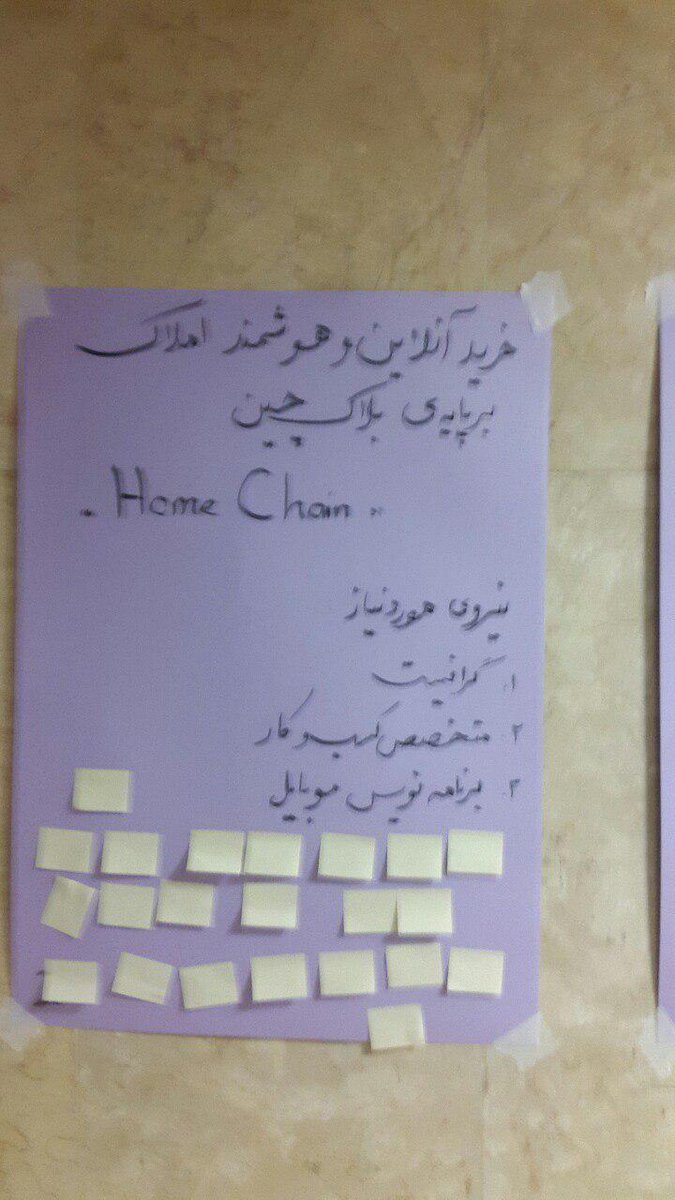 خرید آنلاین و هوشمند املاک
بر پایه‌ی بلاک چین
" Home Chain "
نیروی موردنیاز
۱. گرافیست
۲. متخصص کسب و کار
۳. برنامه نویس موبایل